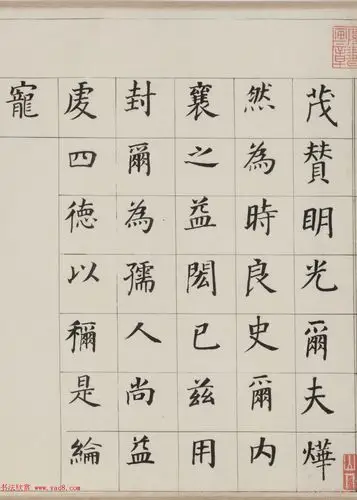 茂賛明光爾夫燁
然為時良史爾内
襄之益閎已兹用
封爾為孺人尚益
虔四徳以稱是綸
寵
书法欣赏 www.yac8.com